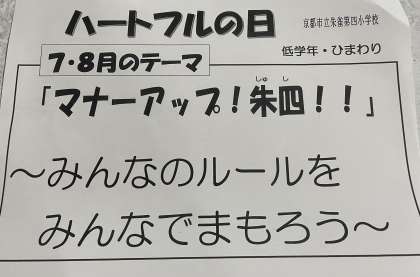 ハートフルの日
京都市立朱雀第四小学校
低学年・ひまわり
7・8月のテーマ
しゅ し
「マナーアップ!朱四!!」
~みんなのルールを
みんなでまもろう~